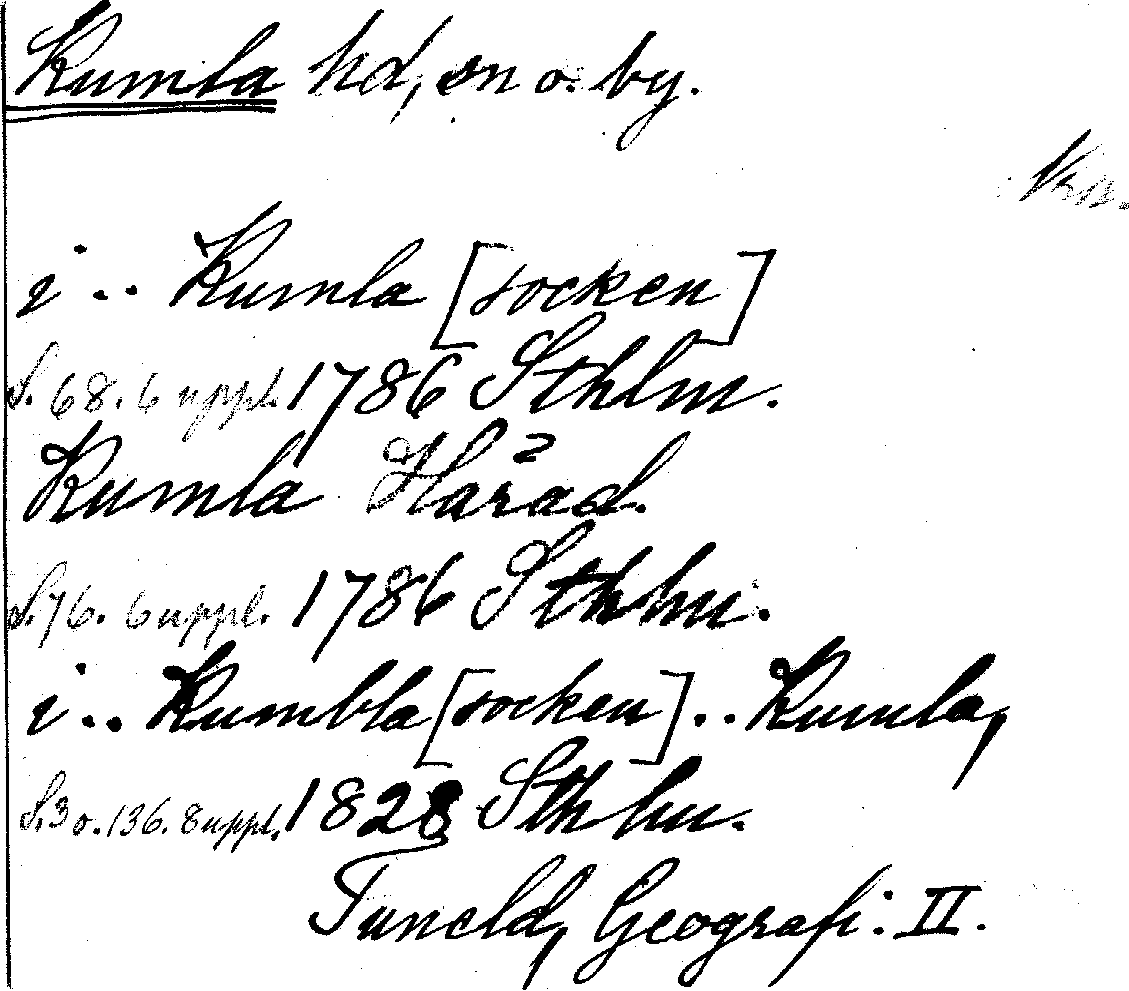 Kumla hd, sn o. by.
i .. Kumla [socken]
S. 68. 6 uppl. 1786 Sthlm.
Kumla Härad.
S. 76. 6 uppl. 1786 Sthlm.
i .. Kumbla [socken] .. Kumla,
S. 3 o. 136. 8 uppl. 1828 Sthlm.
Tuneld, Geografi. II.